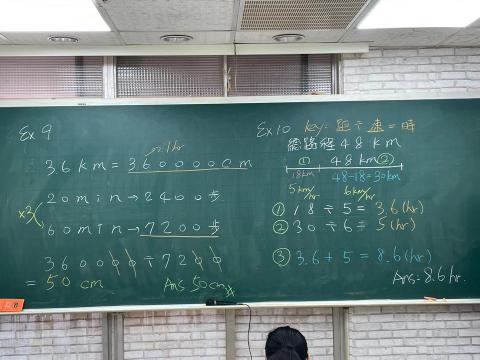 Ex 9
1hr
3.6km=360000cm
20min→2400步
×3
60min→7200步
360000÷7200
=50cm
Ans 50cm
Ex10 key:距÷速=時
總路程48km
① 48km ②
18km 48-18=30km
5km/hr 6km/hr
① 18÷5=3.6(hr)
② 30÷6=5(hr)
③ 3.6+5=8.6(hr)
Ans=8.6hr.